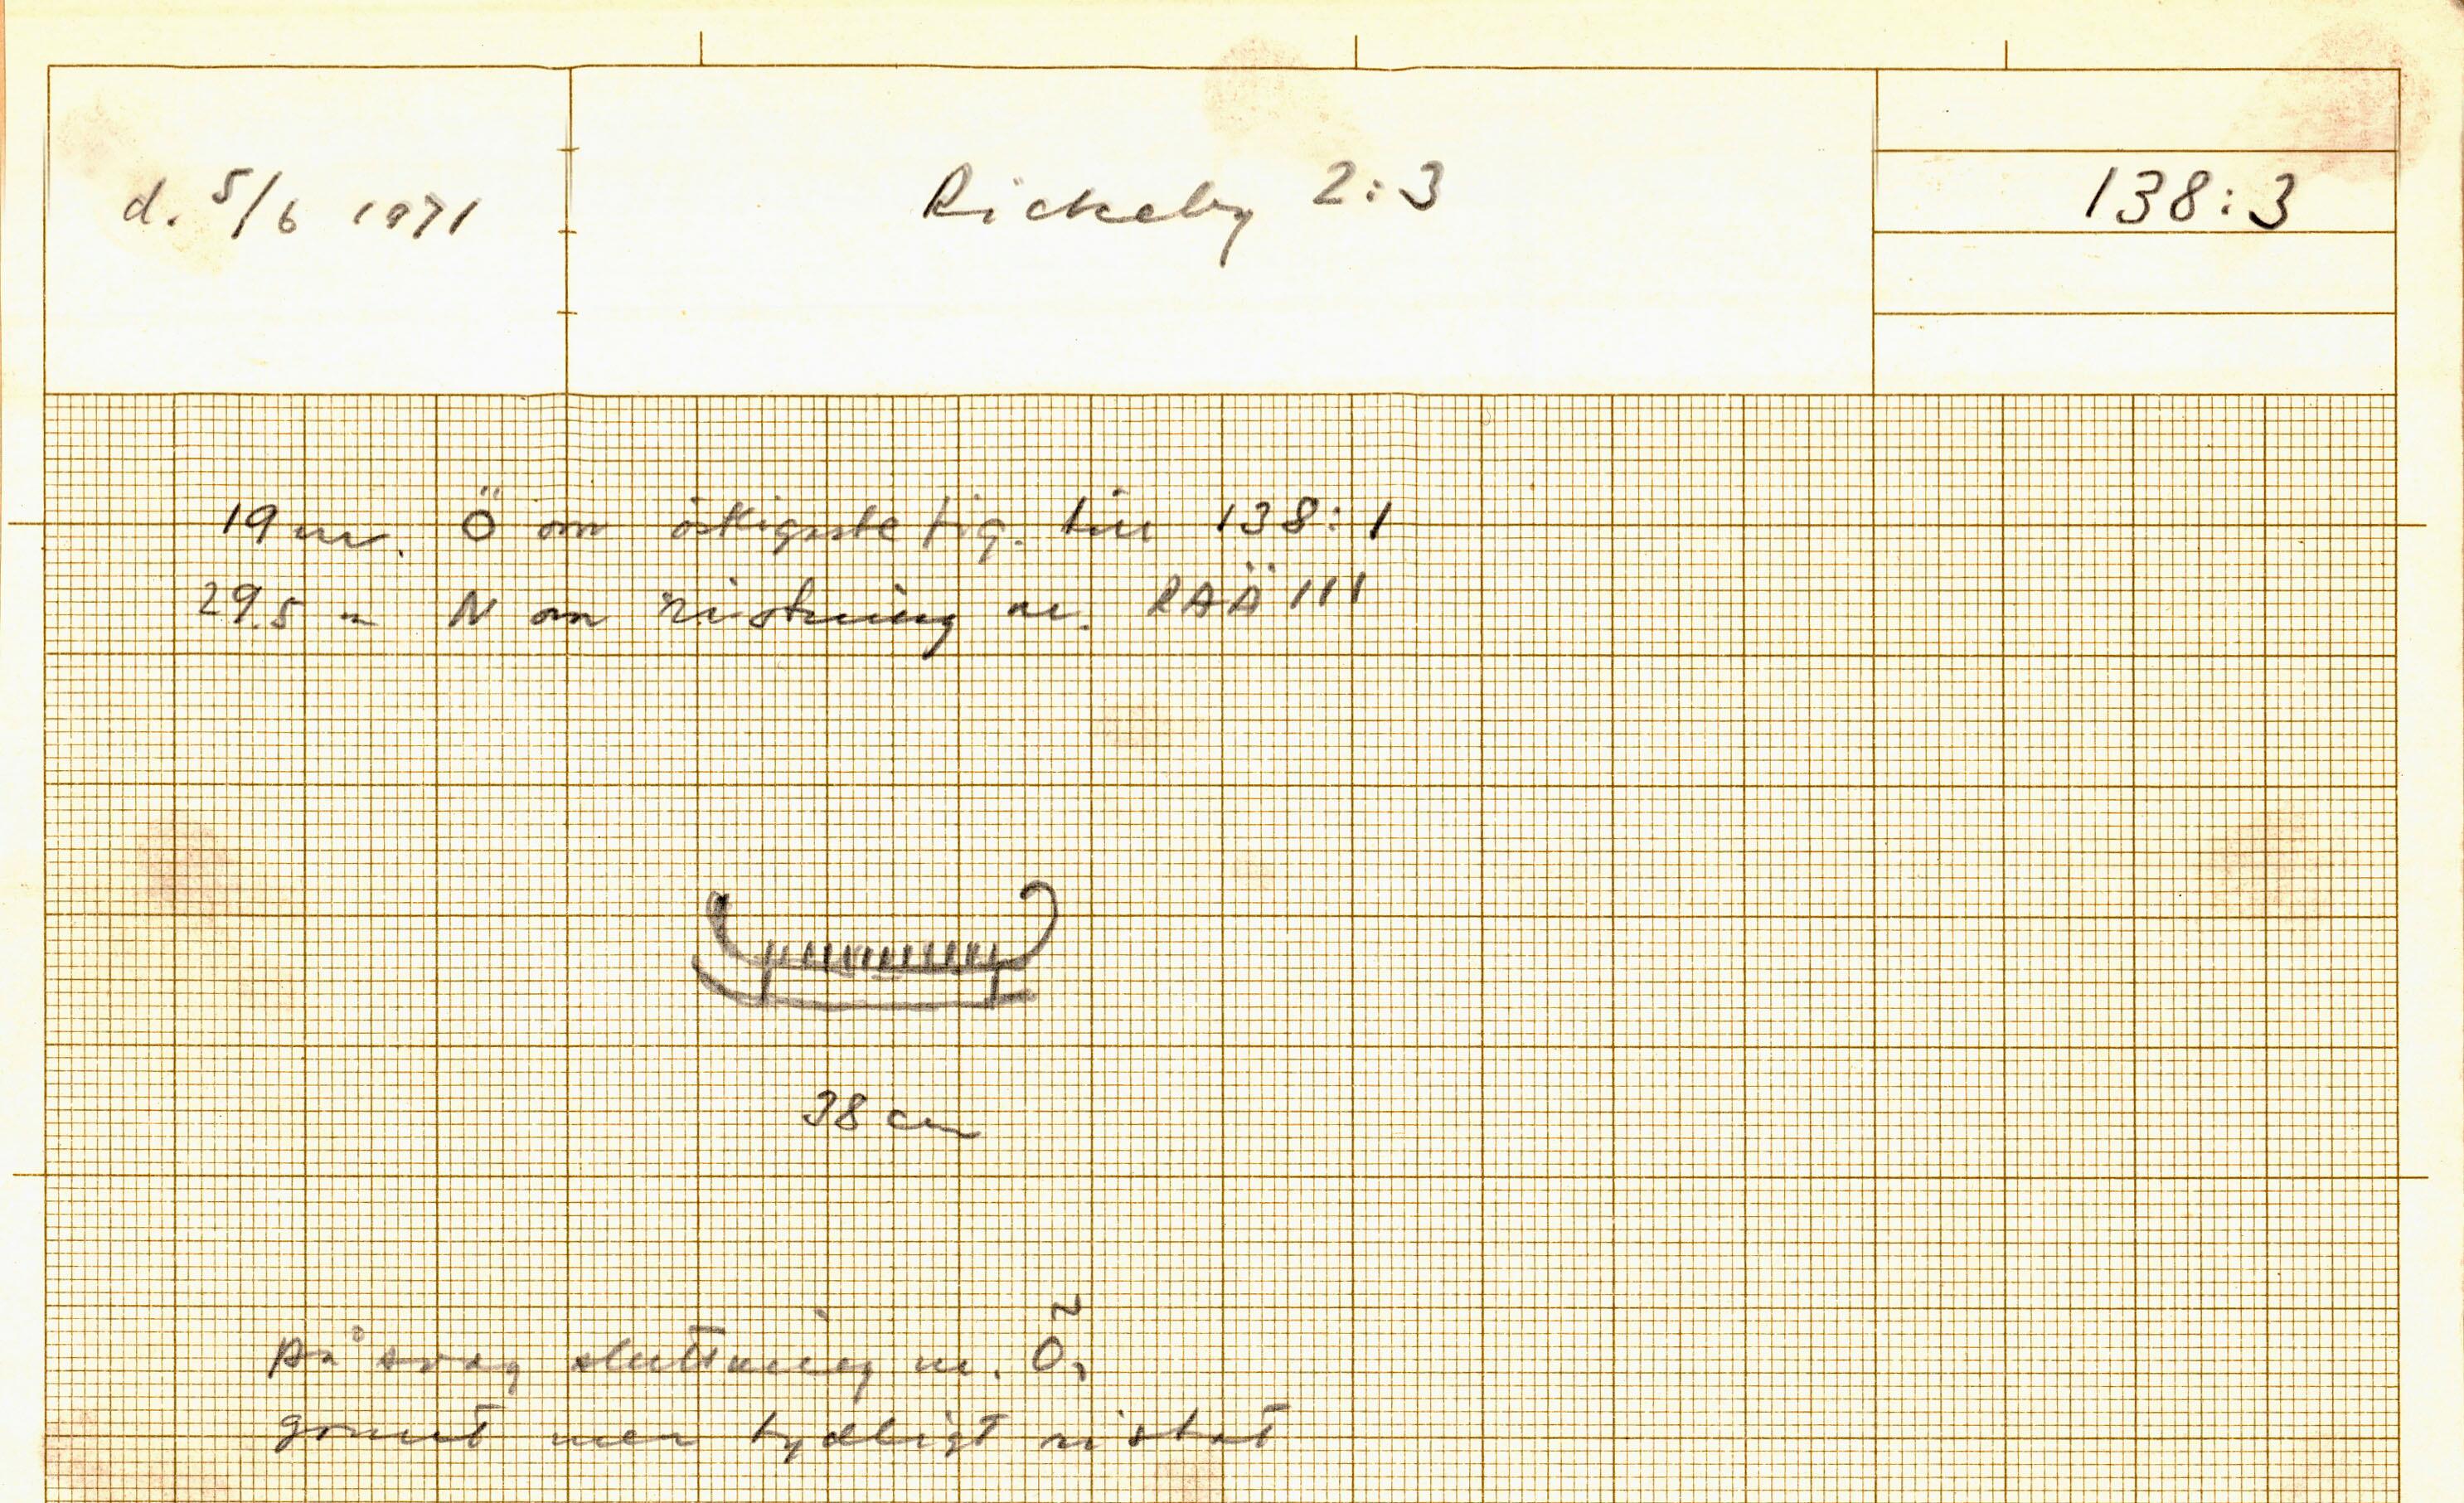 d. 5/6 1971
Rickeby 2:3
138:3
19 m. Ö om östligaste fig. till 138:1
29.5 m N om ristning nr. RAÄ 111
38 cm
På svag sluttning m. Ö,
grunt men tydligt ristat